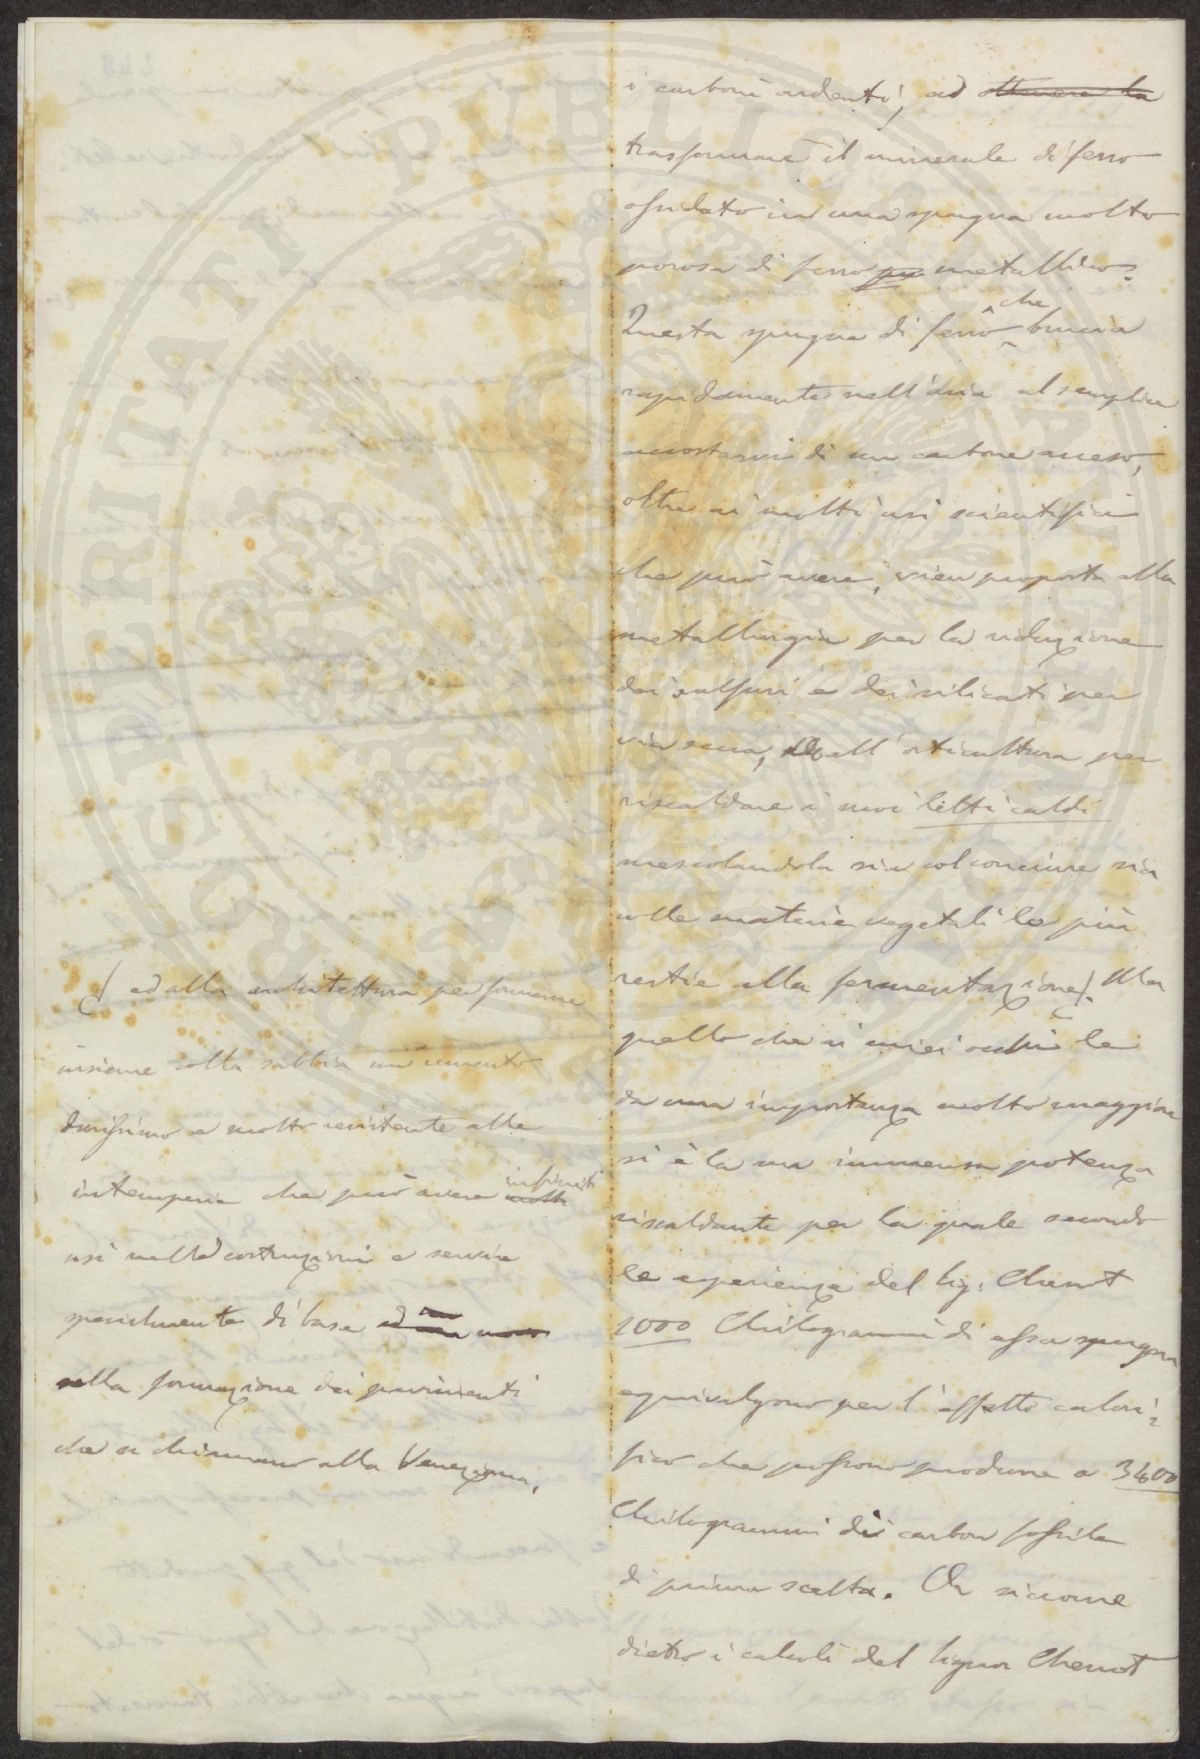 i carboni ardenti, ad ottenere la
trasformare il minerale di ferro
ossidato in una spugna molto
porosa di ferro metallico.
Questa spugna di ferro che brucia
rapidamente nell'aria al semplice
accostarvi di un carbone acceso,
oltre ai molti usi scientifici
che può avere, vien proposta alla
metallurgia per la riduzione
dei sulfuri e dei silicati per
via secca, all'orticultura per
riscaldare i suoi letti caldi
mescolandola sia col concime sia
colle materie vegetali le più
restie alla fermentazione. Ma
quello che ai miei occhi le
da una importanza molto maggiore
si è la sua immensa potenza
riscaldante per la quale secondo
le esperienze del Sig. Chenot
1000 Chilogrammi di essa spugna
equivalgono per l'effetto calori=
fico che possono produrre a 3400
Chilogrammi di carbon fossile
di prima scelta. Or siccome
dietro i calcoli del Signor Chenot
ed alla architettura per formarne
insieme colla sabbia un cemento
durissimo e molto resistente alle
intemperie che può avere molti infiniti
usi nelle costruzioni e servire
specialmente di base ad una
nella formazione dei pavimenti
che si chiamano alla Veneziana.
PROSPERITATI PUBLICAE AUGENDAE